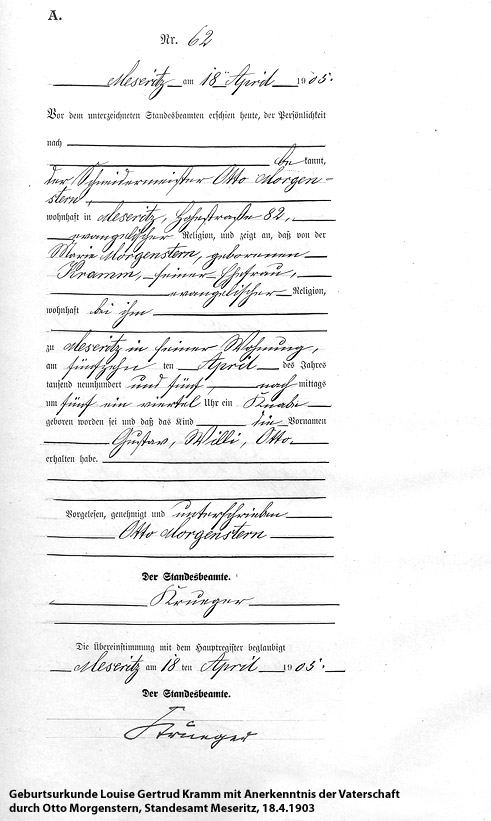 A.
Nr. 62
Meseritz am 18ten April 1905.
Vor dem unterzeichneten Standesbeamten erschien heute, der Persönlichkeit
nach
be kannt,
der Schneidermeister Otto Morgen-
stern,
wohnhaft in Meseritz, Hohestraße 82,
evangelischer Religion, und zeigt an, daß von der
Marie Morgenstern, geborenen
Kramm, seiner Ehefrau,
evangelischer Religion,
wohnhaft bei ihm
zu Meseritz in seiner Wohnung,
am fünfzehn ten April des Jahres
tausend neunhundert und fünf nach mittags
um fünf ein viertel Uhr ein Knabe
geboren worden sei und daß das Kind die Vornamen
Gustav, Willi, Otto
erhalten habe.
Vorgelesen, genehmigt und unterschrieben
Otto Morgenstern
Der Standesbeamte.
Krueger
Die Übereinstimmung mit dem Hauptregister beglaubigt
Meseritz am 18 ten April 1905.
Der Standesbeamte.
Krueger
Geburtsurkunde Louise Gertrud Kramm mit Anerkenntnis der Vaterschaft
durch Otto Morgenstern, Standesamt Meseritz, 18.4.1903